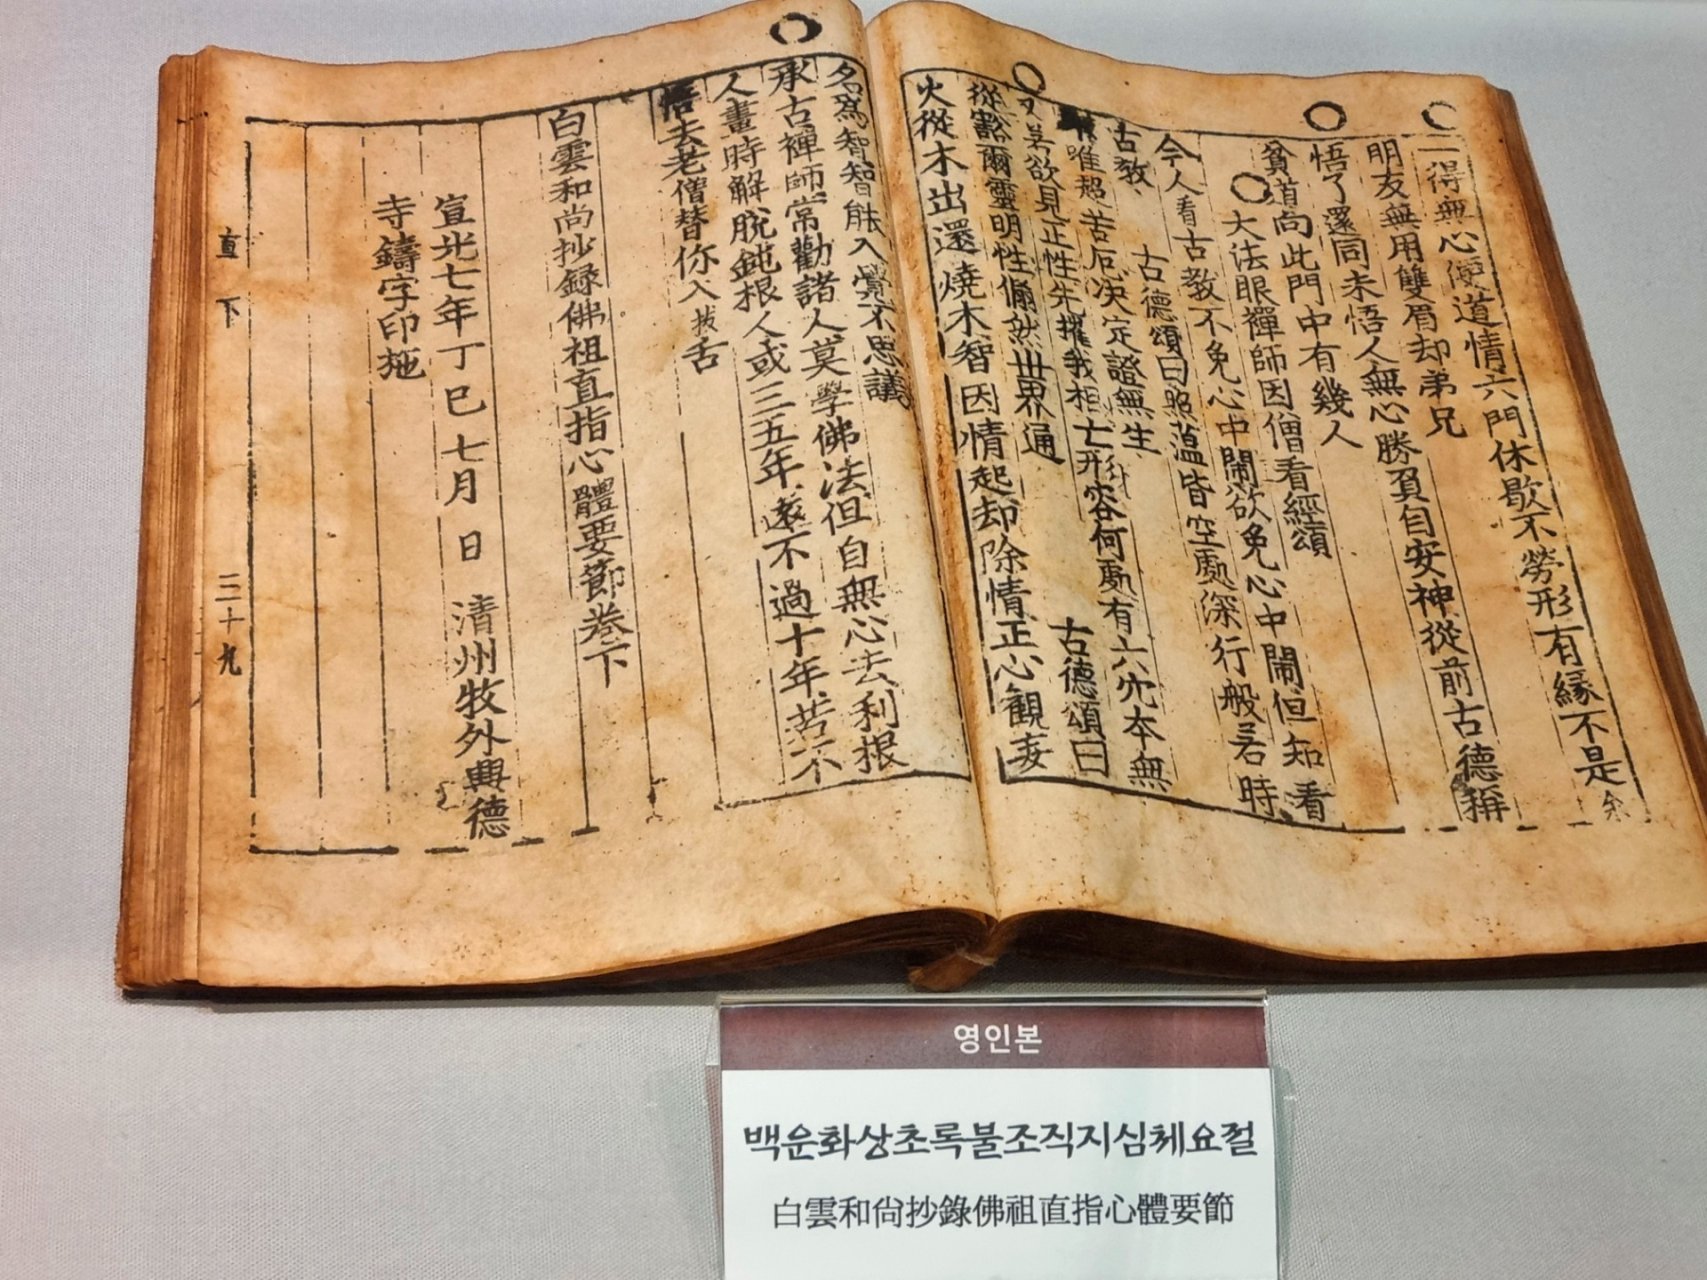 一得無心便道情六門休歇不勞形有緣不是余
明友無用雙眉却弟兄
悟了還同未悟人無心勝負自安神從前古德稱
貧道向此門中有幾人
大法眼禪師因僧看經頌
今人看古教不免心中鬧欲免心中鬧但知看
古教 古德頌曰照蘊皆空處深行般若時
惟超苦厄決定證無生
又若欲見正性先摧我相亡形容何處有六穴本無
從豁爾靈明性翛然世界通 古德頌曰
火從木出還燒木智因情起却除情正心觀妄
名為智智能入覺不思議
承古禪師常勸諸人莫學佛法但自無心去利根
人晝時解脫鈍根人或三五年遠不過十年若不
悟去老僧替你入拔舌
白雲和尚抄録佛祖直指心體要節卷下
宣光七年丁巳七月 日 清州牧外興德
寺鑄字印施
直下 三十九
영인본
백운화상초록불조직지심체요절
白雲和尙抄錄佛祖直指心體要節